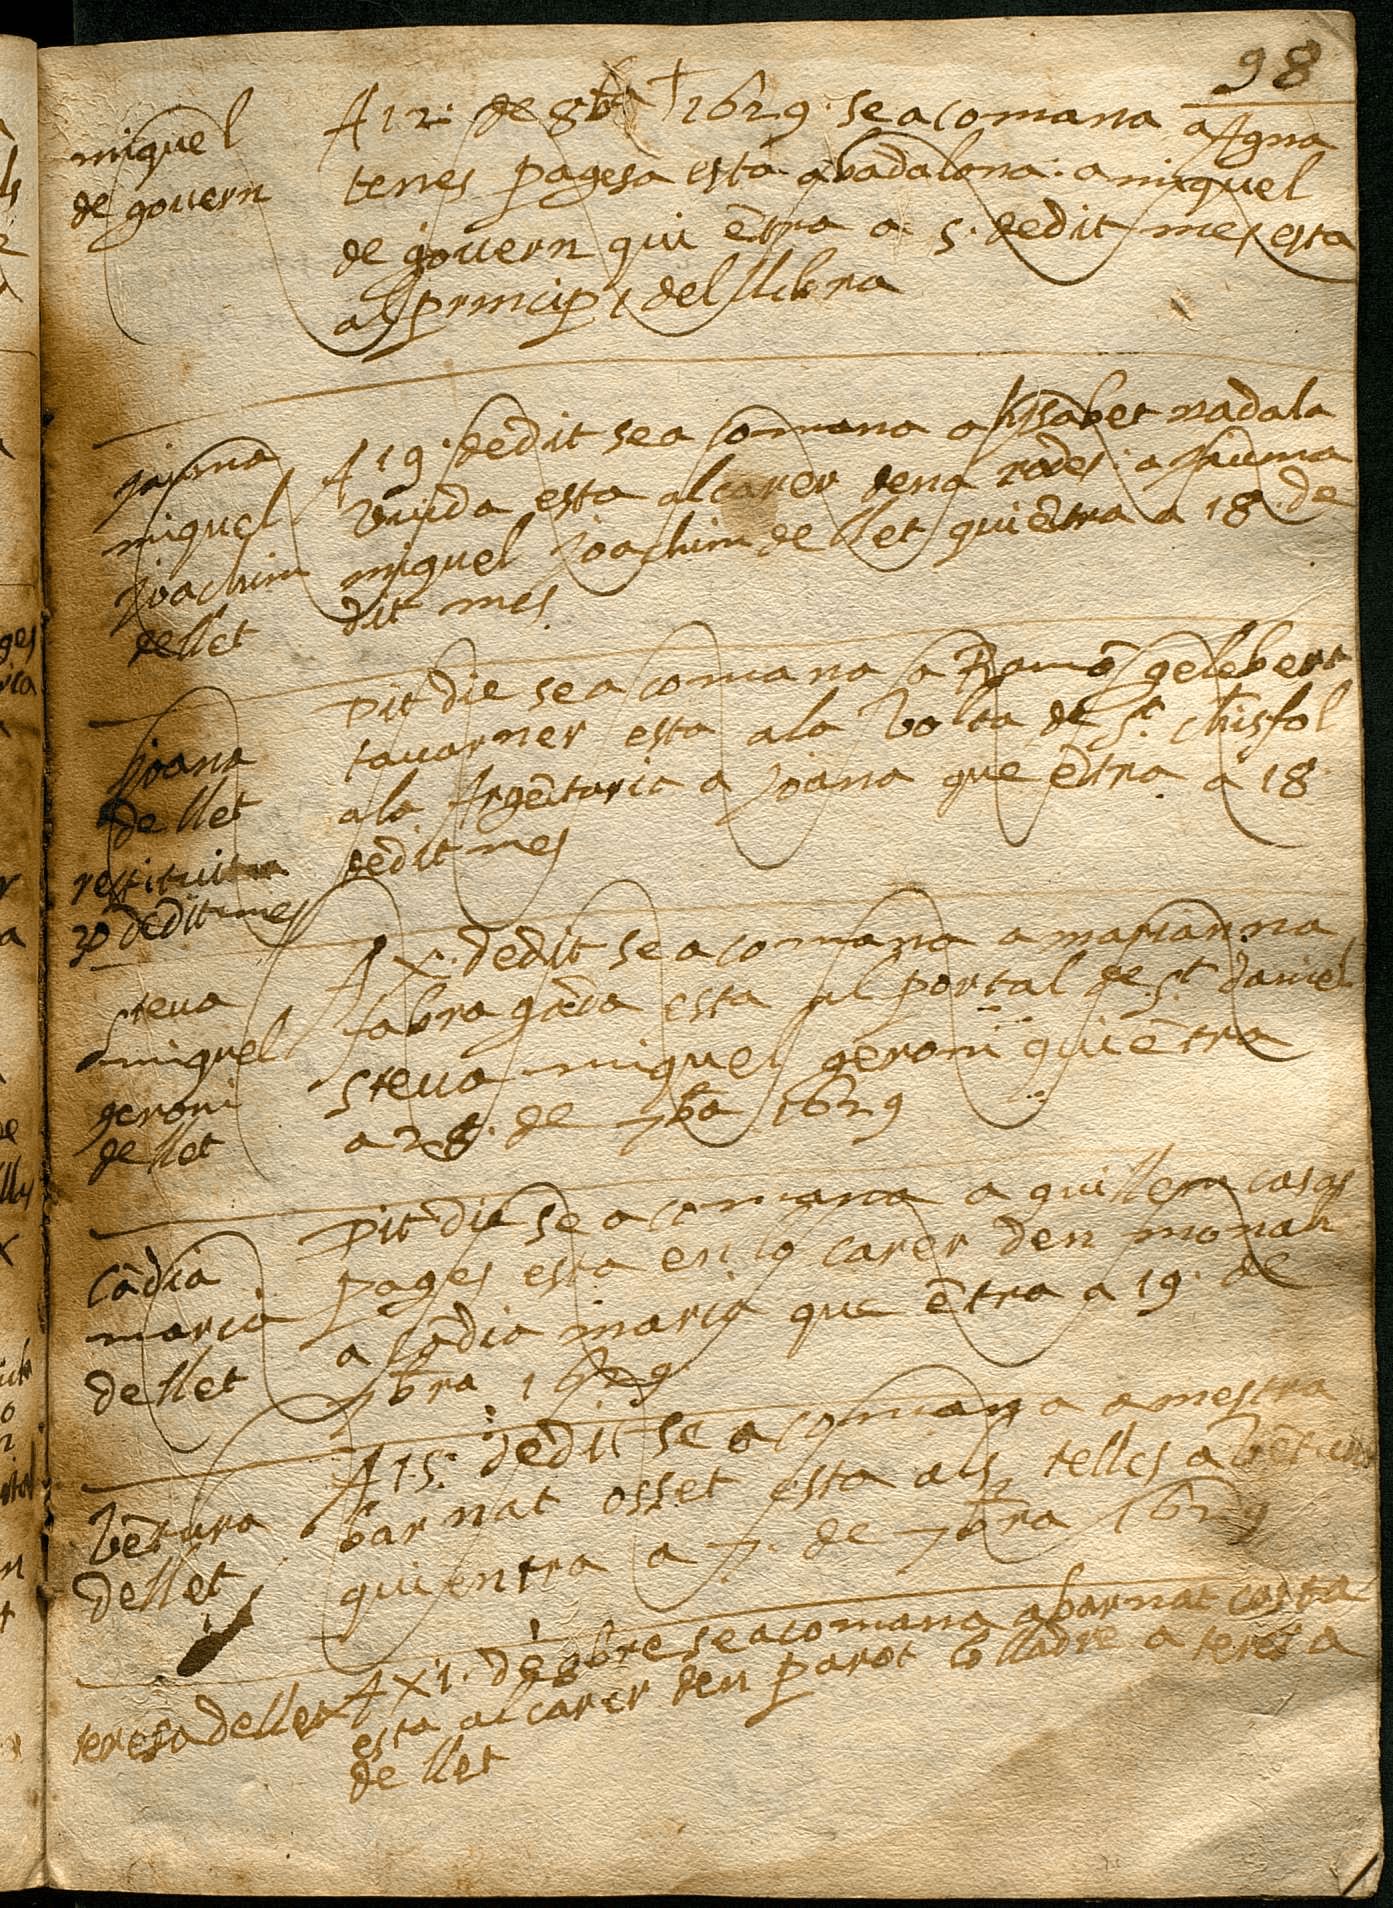 98
miquel
de govern
A 12. de 8bra † 1629. se a comana a Agna
terres pagesa esta a badalona. a miquel
de govern qui ētra a 5. de dit mes esta
al principi del llibra
jayma
miquel
joachim
de llet
A 19. de dit se a comana a hisabet nadala
viuda esta al carer dena rodes. a jauma
miquel joachim de llet qui ētra a 18. de
dit mes
joana
de llet
restituit a
30 de dit mes
Dit die se a comana a Ramō gelebert
tauarner esta a la volta de St. chisfol
a la Argētaria a joana que ētra a 18.
de dit mes
steua
miquel
geroni
de llet
A X. de dit se a comana a marianna
fabragada esta al portal de St. daniel
steua miquel geroni qui ētra
a 28. de 7bra 1629
Cādia
maria
de llet
Dit die se a comana a guillem casas
pages esta en lo carer den monah
a Cādia maria que ētra a 19. de
7bra 1629
Vētura
de llet
A 15. de dit se a comana a mestra
barnat osset esta als telles a Vētura
qui entra a 7. de 7bra 1629
teresa de llet
A X1. de 8bre se a comana a barnat costa
esta al carer den parot lo lladre a teresa
de llet